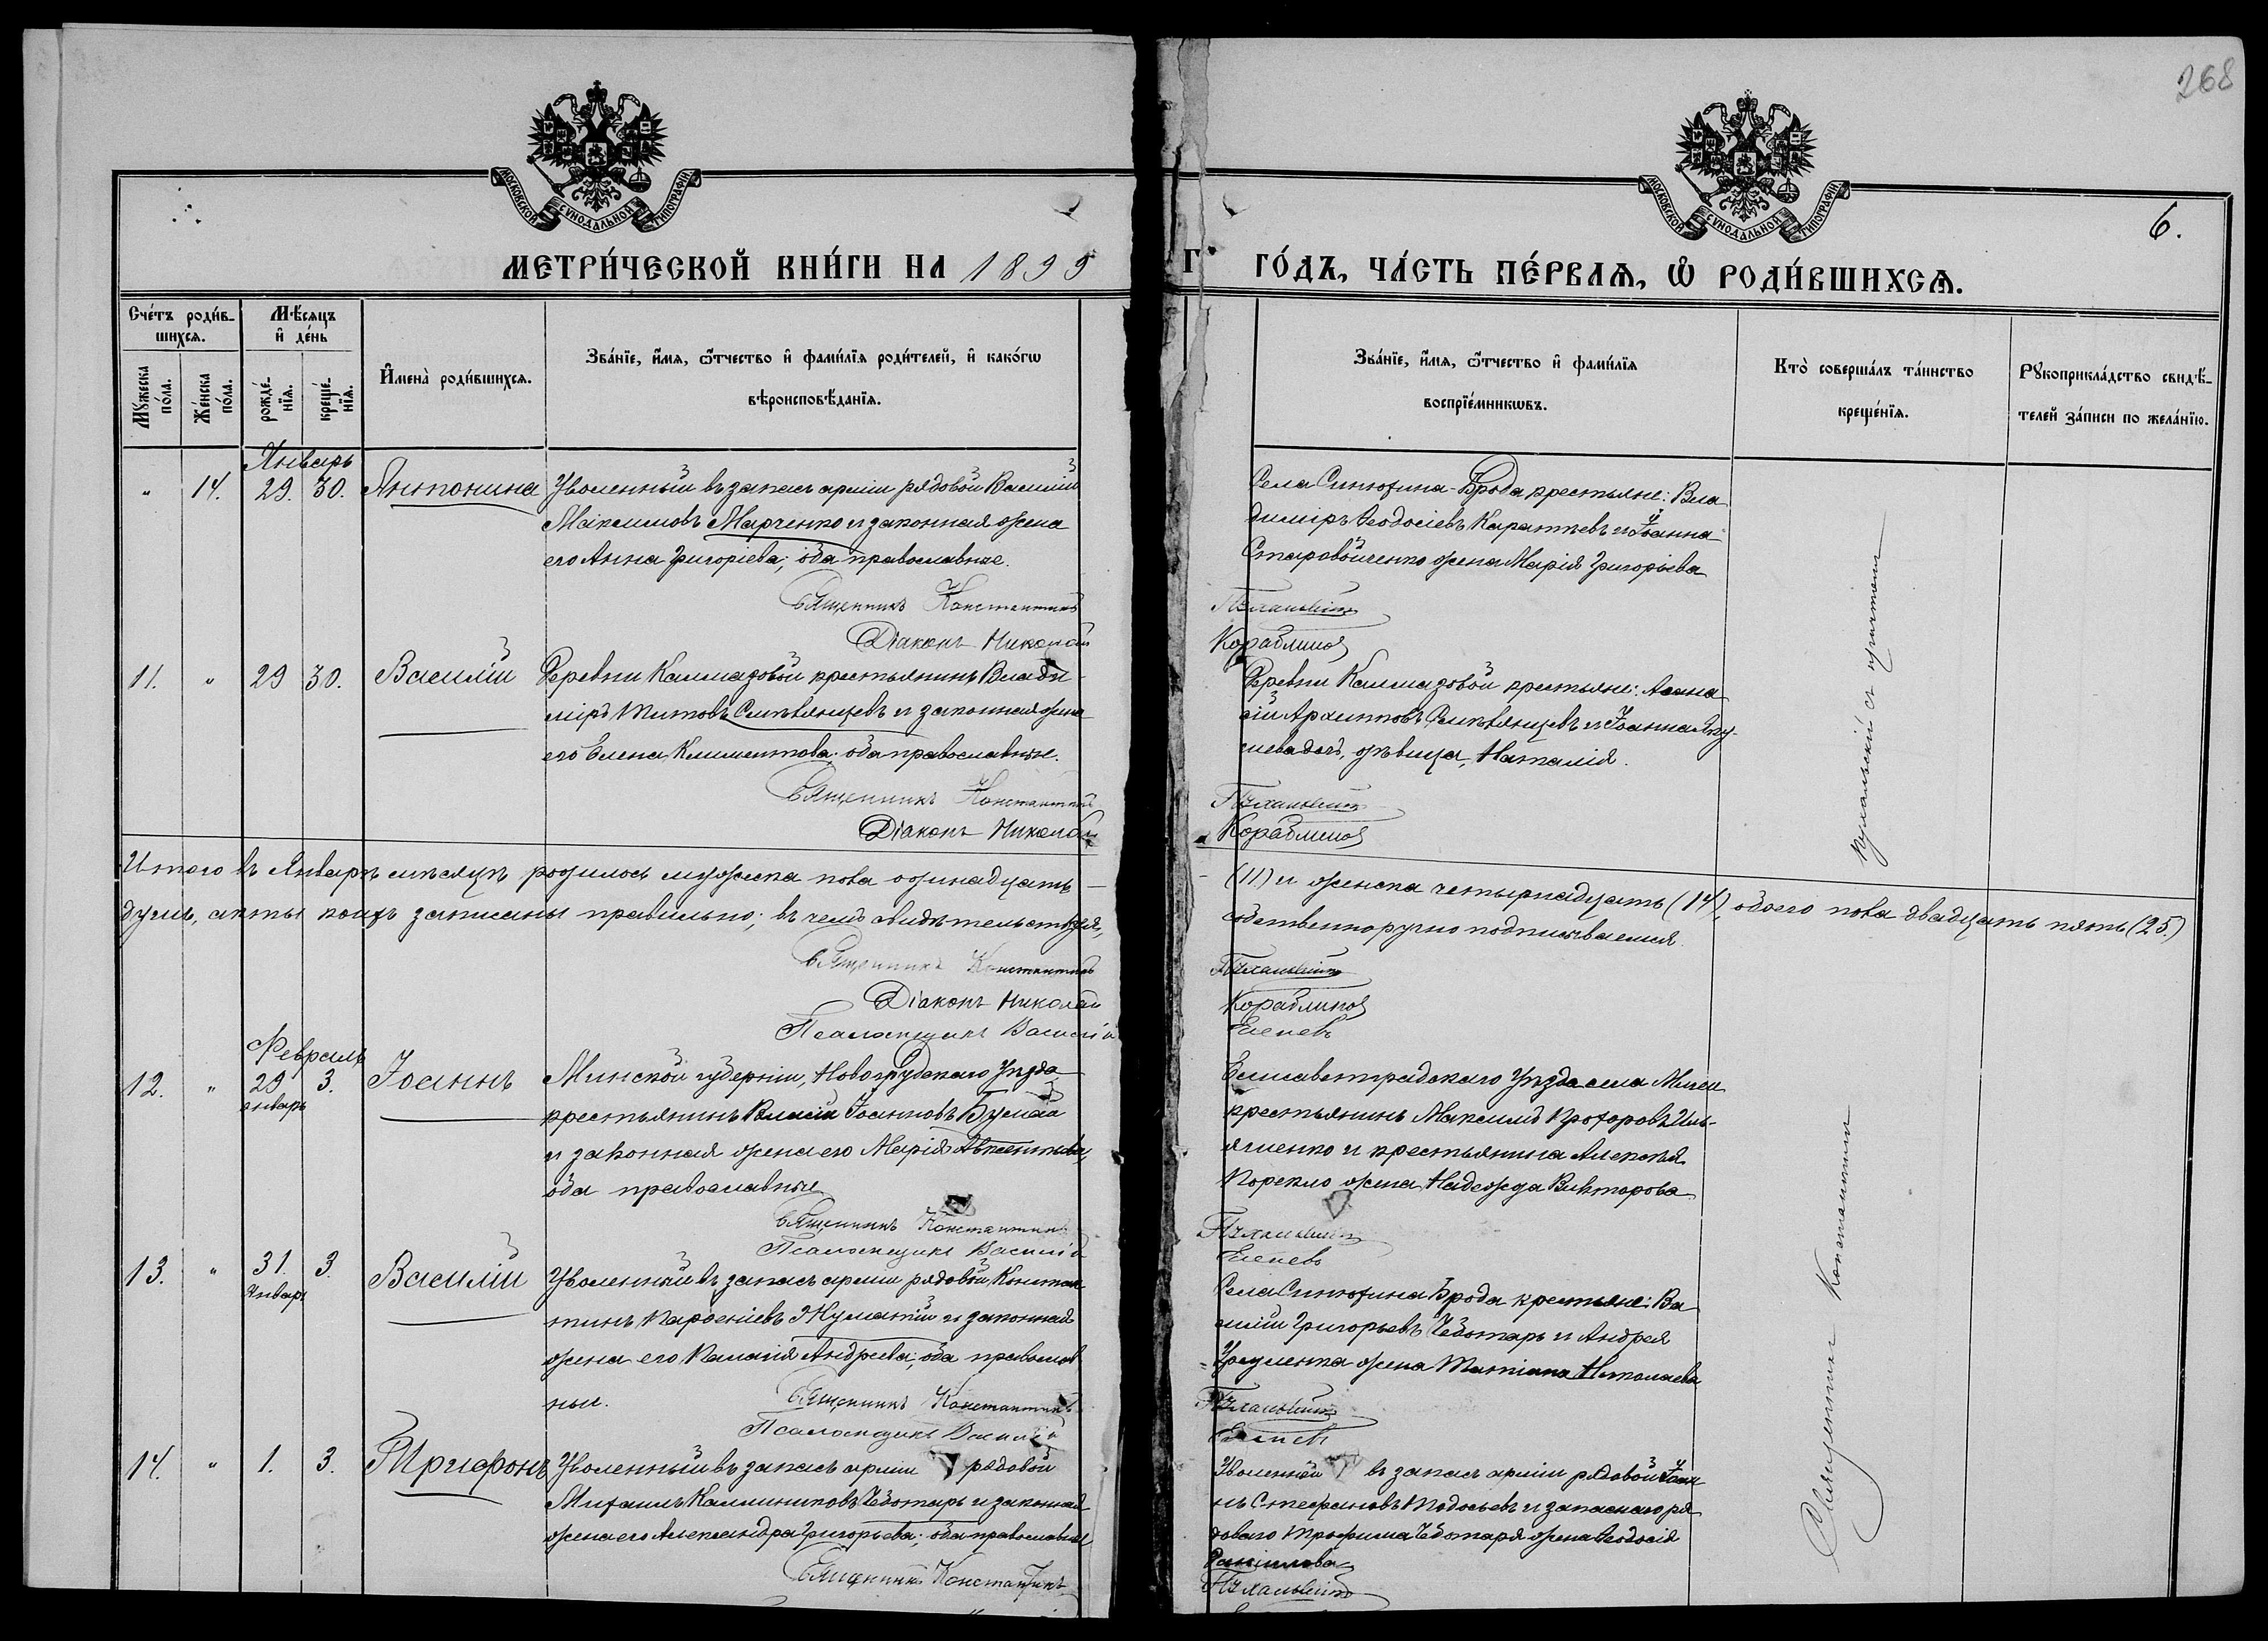 268
МОСКОВСКОЙ СѴНОДАЛЬНОЙ ТИПОГРАФІИ
МОСКОВСКОЙ СѴНОДАЛЬНОЙ ТИПОГРАФІИ
6.
МЕТРИ́ЧЕСКОЙ КНИ́ГИ НА 1899 Г
ГО́ДЪ, ЧА́СТЬ ПЕ́РВАѦ, Ѿ РОДИ́ВШИХСѦ.
Сче́тъ роди́в-
шихсѧ.
Мѣ́сѧцъ
и де́нь
Мꙋ́жеска
по́ла.
Же́нска
по́ла.
рожде́-
нїѧ.
креще́-
нїѧ.
Имена̀ роди́вшихсѧ.
Зва́нїе, и́мѧ, ѻ҆́тчество и фами́лїѧ роди́телей, и како́гѡ
вѣроисповѣ́данїѧ.
Зва́нїе, и́мѧ, ѻ҆́тчество и фами́лїѧ
воспрїе́мникѡвъ.
Кто̀ соверша́лъ та́инство
креще́нїѧ.
Рꙋкоприкла́дство свидѣ́-
телей за́писи по жела́нїю.
Январь
" 14. 29. 30. Антонина
Уволенный въ запасъ арміи рядовой Василій
Максимовъ Марченко и законная жена
его Анна Григоріева; оба православные.
Священникъ Константинъ
Діаконъ Николай
Села Синюхина-Брода крестьяне: Вла-
диміръ Ѳеодосіевъ Каратѣевъ и Іоанна
Старовойченко жена Марія Григорьева
Кораблиновъ
11. " 29 30. Василій
Деревни Калмазовой крестьянинъ Влади-
міръ Титовъ Слѣвянцевъ и законная жена
его Елена Климентова; оба православные.
Священникъ Константинъ
Діаконъ Николай
Деревни Калмазовой крестьяне: Аѳана-
сій Архиповъ Слѣвянцевъ и Іоанна
дочь, дѣвица, Наталія.
Кораблиновъ
Итого въ Январѣ мѣсяцѣ родилось мужеска пола одинадцать
(11) и женска четырнадцать (14), обоего пола двадцать пять (25.)
душъ, акты коихъ записаны правильно; въ чемъ свидѣтельствуя,
собственноручно подписываемся.
Священникъ Константинъ
Діаконъ Николай
Псаломщикъ Василій
Кораблиновъ
Февраль
12. " 29 январь 3. Іоаннъ
Минской губерніи, Новогрудскаго Уѣзда
крестьянинъ Іоанновъ
и законная жена его Марія
оба православные
Священникъ Константинъ
Псаломщикъ Василій
Елисаветградскаго Уѣзда села
крестьянинъ Максимъ Прохоровъ Иль-
яшенко и крестьянина Алексѣя
жена Надежда Викторова
13. " 31. Январь 3. Василій
Уволенный въ запасъ арміи рядовой Констан-
тинъ Парѳеніевъ и законная
жена его Пелагія Андреева; оба православ-
ные.
Священникъ Константинъ
Псаломщикъ Василій
Села Синюхина Брода крестьяне: Ва-
силій Григорьевъ Чеботарь и Андрея
жена Татіана Николаева
14. " 1. 3. Трифонъ
Уволенный въ запасъ арміи рядовой
Михаилъ Каллиниковъ Чеботарь и законная
жена его Александра Григорьева; оба православные
Священникъ Константинъ
Уволенный въ запасъ арміи рядовой Іоан-
нъ Стефановъ Тодосьевъ и запаснаго ря-
доваго Трофима Чеботаря жена Ѳеодосія
Даніилова
Священникъ Константинъ